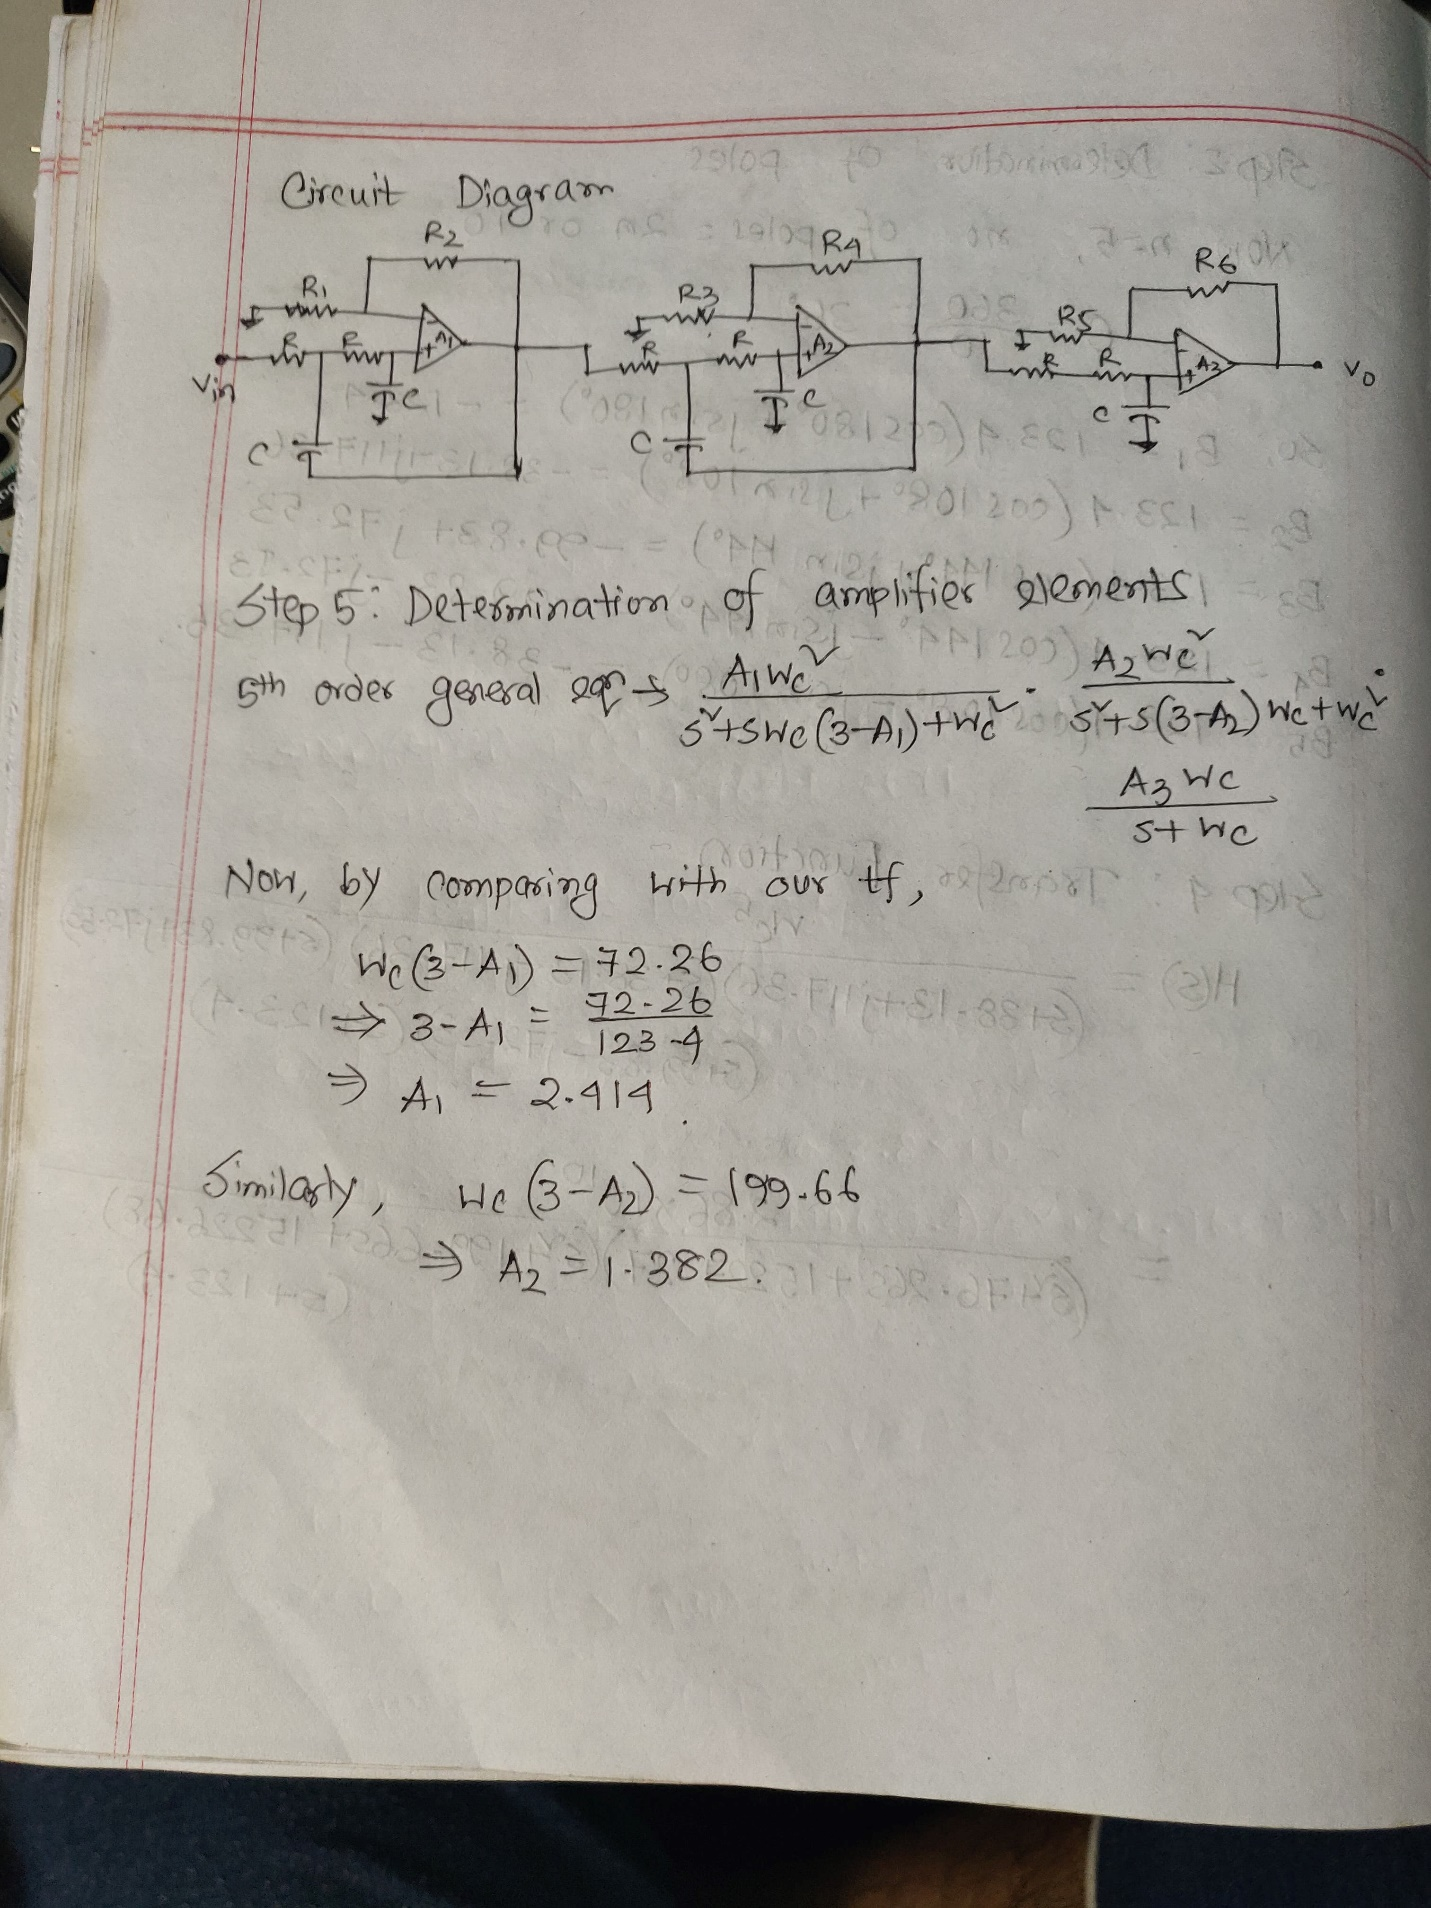 Circuit Diagram
R2 R4 R6
R1 R3 R5
R R A1 R R A2 R R A3
Vin C C C Vo
C C
Step 5: Determination of amplifier elements
5th order general eqn → A1 Wc² / s²+sWc(3-A1)+Wc² · A2 Wc² / s²+s(3-A2)Wc+Wc² ·
A3 Wc / s+Wc
Now, by comparing with our tf,
Wc(3-A1) = 72.26
⇒ 3-A1 = 72.26 / 123.4
⇒ A1 = 2.414
Similarly, Wc(3-A2) = 199.66
⇒ A2 = 1.382.